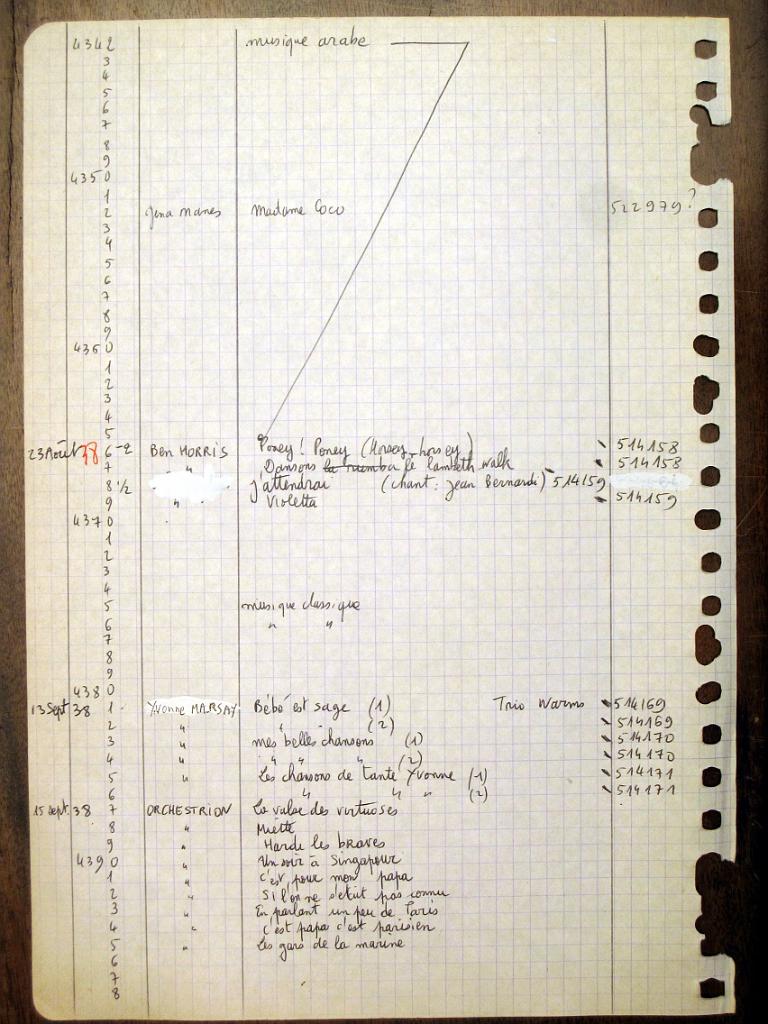 4342 musique arabe
3
4
5
6
7
8
9
4350
1
2 Madame Coco 522979?
3
4
5
6
7
8
9
4360
1
2
3
4
5
23 Août 38 6-2 Ben HORRIS Poney! Poney (Horsey-horsey) 514158
7 " Dansons la rumba le lambeth walk 514158
8 1/2 J'attendrai (chant: Jean Bernardi) 514159
9 " Violetta 514159
4370
1
2
3
4
5 musique classique
6 " "
7
8
9
4380
13 Sept 38 1 Yvonne MARSAY Bébé est sage (1) Trio Warms 514169
2 " " " (2) 514169
3 " mes belles chansons (1) 514170
4 " " " (2) 514170
5 " Les chansons de tante Yvonne (1) 514171
6 " " " (2) 514171
15 sept. 38 7 ORCHESTRION La valse des virtuoses
8 " Miette
9 " Hardi les braves
4390 " Un soir à Singapour
1 " C'est pour mon papa
2 " Si l'on ne s'était pas connu
3 " En parlant un peu de Paris
4 " C'est papa c'est parisien
5 " Les gars de la marine
6
7
8